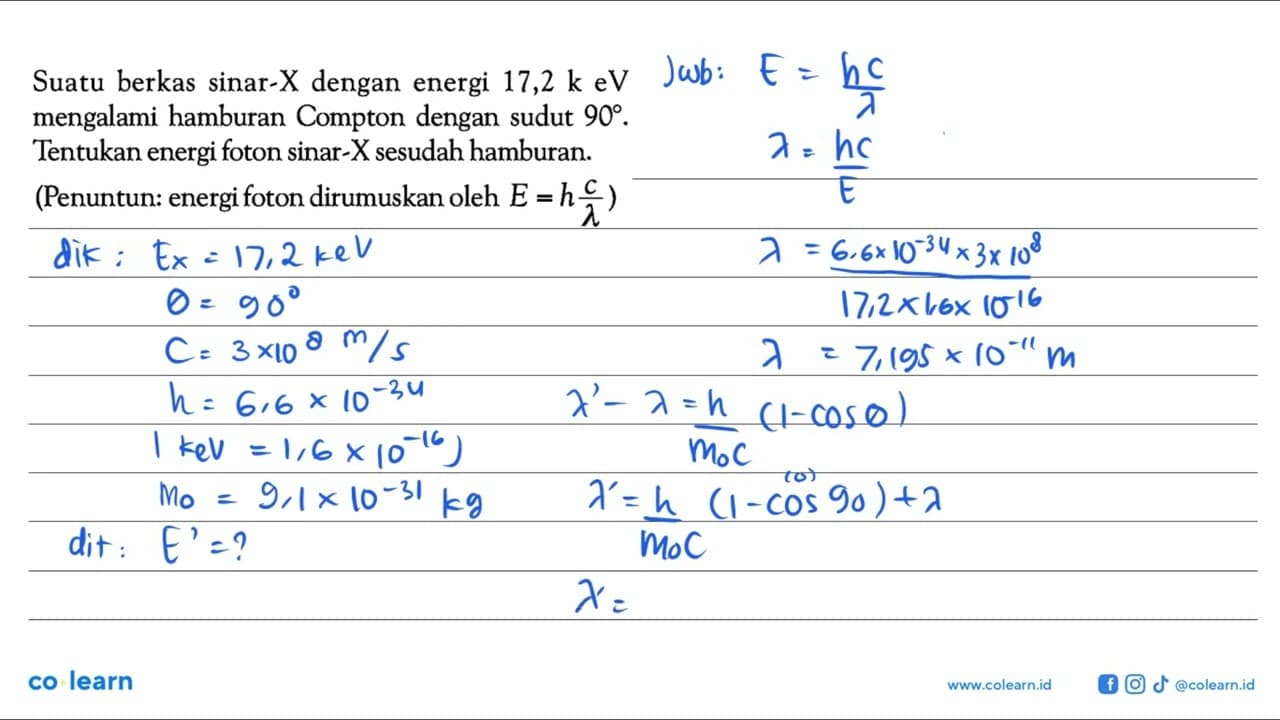 Suatu berkas sinar-X dengan energi 17,2 k eV
mengalami hamburan Compton dengan sudut 90°.
Tentukan energi foton sinar-X sesudah hamburan.
(Penuntun: energi foton dirumuskan oleh E = h c/λ)
dik : Ex = 17,2 keV
θ = 90°
C = 3 × 10^8 m/s
h = 6,6 × 10^-34
1 keV = 1,6 × 10^-16 J
Mo = 9,1 × 10^-31 kg
dit : E' = ?
Jwb : E = hc/λ
λ = hc/E
λ = 6,6 × 10^-34 × 3 × 10^8 / 17,2 × 1,6 × 10^-16
λ = 7,195 × 10^-11 m
λ' - λ = h/MoC (1 - cos θ)
λ' = h/MoC (1 - cos 90) + λ
(0)
λ' =
co·learn
www.colearn.id
@colearn.id